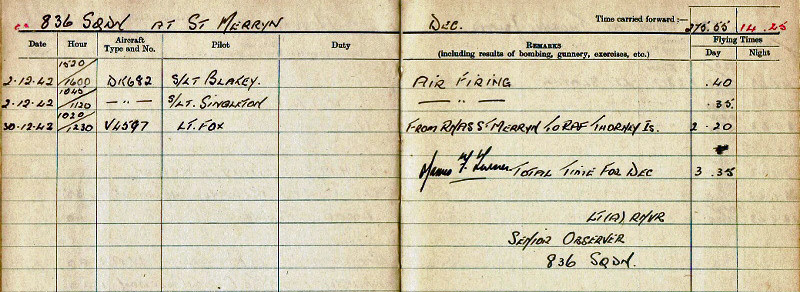 836 SQDN AT ST MERRYN DEC. Time carried forward:— 275.55 14.25
Date Hour Aircraft Type and No. Pilot Duty REMARKS (including results of bombing, gunnery, exercises, etc.) Flying Times Day Night
2-12-42 1520/1600 DK682 S/LT BLAKEY. AIR FIRING .40
2-12-42 1045/1120 — " — S/LT. SINGLETON — " — .35
30-12-42 1020/1230 V4597 LT. FOX FROM RNAS ST MERRYN TO RAF THORNEY IS. 2.20
TOTAL TIME FOR DEC 3.35
LT(A) RNVR
SENIOR OBSERVER
836 SQDN.